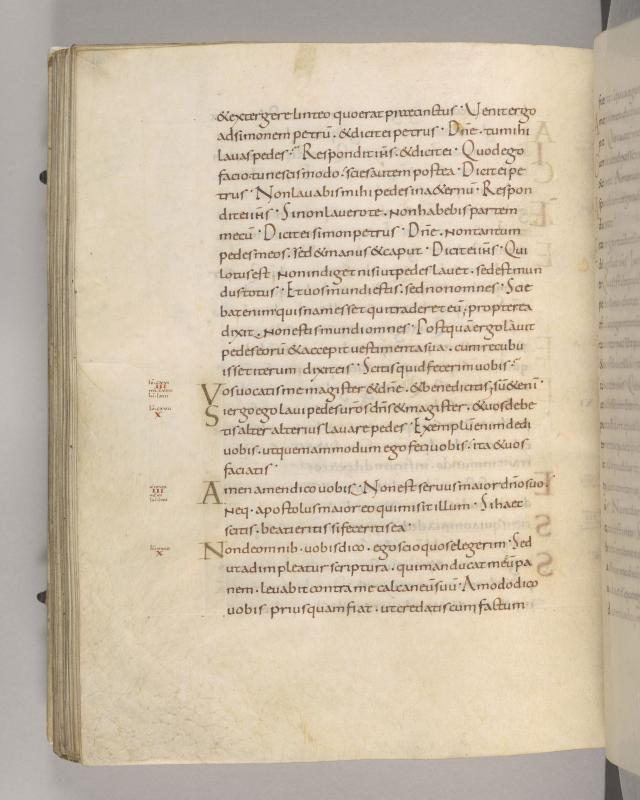 & extergere linteo quo erat praecinctus · Venit ergo
ad simonem petrū · & dicit ei petrus · Dn̄e · tu mihi
lavas pedes · Respondit ih̄s · & dicit ei · Quod ego
facio tu nescis modo · scies autem postea · Dicit ei pe
trus · Non lavabis mihi pedes in aeternū · Respon
dit ei ih̄s · Si non lavero te · non habebis partem
mecū · Dicit ei simon petrus · Dn̄e · non tantum
pedes meos · sed & manus & caput · Dicit ei ih̄s · Qui
lotus est non indiget nisi ut pedes lavet · sed est mun
dus totus · Et vos mundi estis · sed non omnes · Scie
bat enim quisnam esset qui traderet eū · propterea
dixit · non estis mundi omnes · Postquā ergo lavit
pedes eorū & accepit vestimenta sua · cum recubu
isset iterum dixit eis · Scitis quid fecerim vobis ·
III
Vos vocatis me magister & dn̄e · & bene dicitis · sū &enī ·
X
Si ergo ego lavi pedes vr̄os dn̄s & magister · & vos debe
tis alter alterius lavare pedes · Exemplū enim dedi
vobis · ut quemammodum ego feci vobis · ita & vos
faciatis ·
III
Amen amen dico vobis · Non est servus maior dn̄o suo ·
Neq · apostolus maior eo qui misit illum · Si haec
scitis · beati eritis si feceritis ea ·
X
Non de omnib · vobis dico · ego scio quos elegerim · Sed
ut adimpleatur scriptura · qui manducat mecū pa
nem · levabit contra me calcaneū suū · Amodo dico
vobis priusquam fiat · ut credatis cum factum